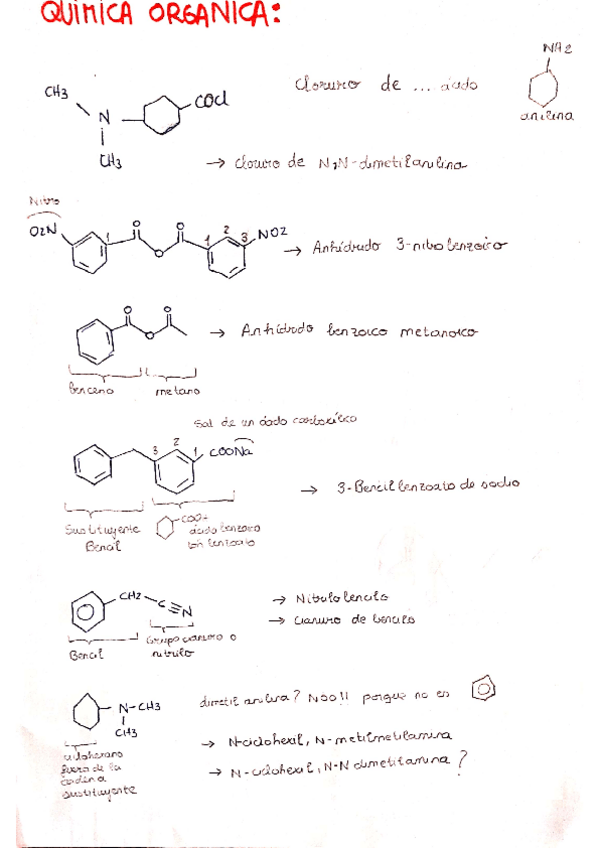 QUÍMICA ORGANICA:
NH2
CH3
N
COCl
Cloruro de ... ácido
anilina
CH3
→ Cloruro de N,N-dimetilanilina
Nitro
O2N
1
O
O
1
2
3
NO2
→ Anhídrido 3-nitrobenzoico
O
O
O
→ Anhídrido benzoico metanoico
benceno
metano
Sal de un ácido carboxílico
3
2
1
COONa
→ 3-Bencilbenzoato de sodio
Sustituyente
Bencil
ácido benzoico
ion benzoato
CH2
C≡N
→ Nitrilo
→ Cianuro de bencilo
Bencil
Grupo cianuro o
nitrilo
N-CH3
CH3
dimetil anilina? NOO!! porque no es
→ N-ciclohexil, N-metilmetilamina
→ N-ciclohexil, N-N dimetilamina?
ciclohexano
fuera de la
cadena
sustituyente